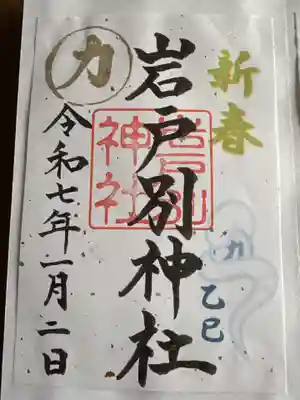 新春
岩戸別神社
岩戸別
神社
力
令和七年一月二日
乙巳